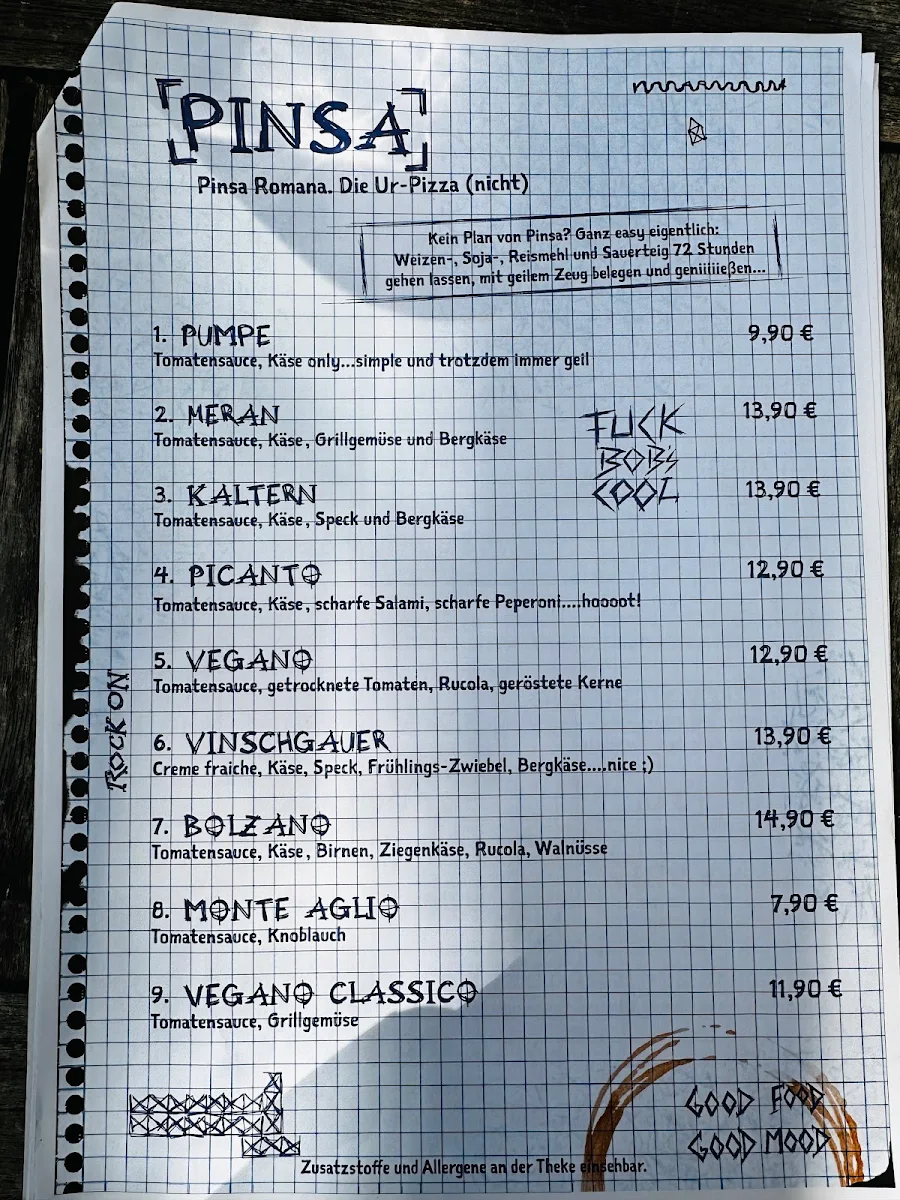 PINSA
Pinsa Romana. Die Ur-Pizza (nicht)
Kein Plan von Pinsa? Ganz easy eigentlich:
Weizen-, Soja-, Reismehl und Sauerteig 72 Stunden
gehen lassen, mit geilem Zeug belegen und geniiiiießen...
1. PUMPE 9,90 €
Tomatensauce, Käse only...simple und trotzdem immer geil
2. MERAN 13,90 €
Tomatensauce, Käse, Grillgemüse und Bergkäse
FUCK
BOB's
COOL
3. KALTERN 13,90 €
Tomatensauce, Käse, Speck und Bergkäse
4. PICANTO 12,90 €
Tomatensauce, Käse, scharfe Salami, scharfe Peperoni....hoooot!
5. VEGANO 12,90 €
Tomatensauce, getrocknete Tomaten, Rucola, geröstete Kerne
ROCK ON
6. VINSCHGAUER 13,90 €
Creme fraiche, Käse, Speck, Frühlings-Zwiebel, Bergkäse....nice ;)
7. BOLZANO 14,90 €
Tomatensauce, Käse, Birnen, Ziegenkäse, Rucola, Walnüsse
8. MONTE AGLIO 7,90 €
Tomatensauce, Knoblauch
9. VEGANO CLASSICO 11,90 €
Tomatensauce, Grillgemüse
GOOD FOOD
GOOD MOOD
Zusatzstoffe und Allergene an der Theke einsehbar.